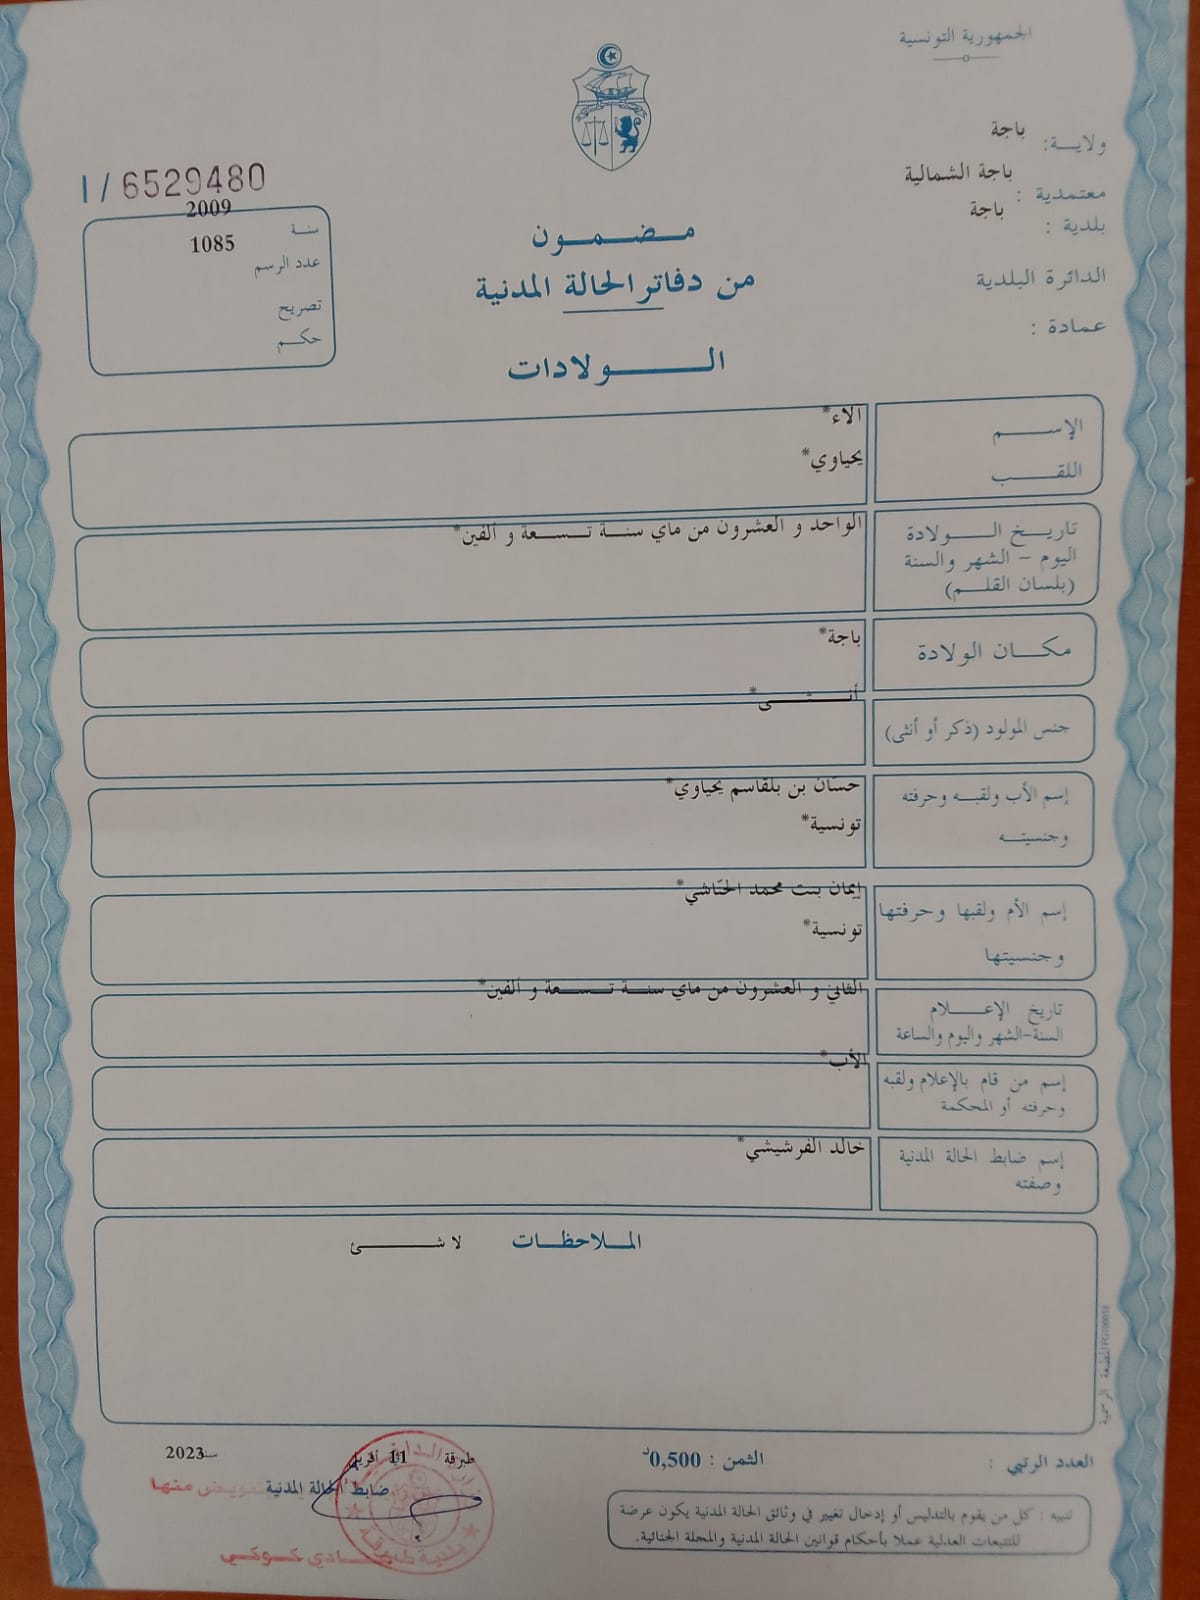 الجمهورية التونسية
ولايـــة: باجة
معتمدية : باجة الشمالية
بلدية : باجة
الدائرة البلدية
عمادة :
I / 6529480
سنة 2009
عدد الرسم 1085
تصريح
حكم
مضمون
من دفاتر الحالة المدنية
الولادات
الإسم الاء*
اللقب يحياوي*
تاريخ الولادة
اليوم - الشهر والسنة
(بلسان القلم)
الواحد و العشرون من ماي سنة تسعة و ألفين*
مكان الولادة باجة*
جنس المولود (ذكر أو أنثى) أنثى*
إسم الأب ولقبه وحرفته
وجنسيته
حسّان بن بلقاسم يحياوي*
تونسية*
إسم الأم ولقبها وحرفتها
وجنسيتها
إيمان بنت محمد الحنّاشي*
تونسية*
تاريخ الإعلام
السنة-الشهر واليوم والساعة
الثاني و العشرون من ماي سنة تسعة و ألفين*
إسم من قام بالإعلام ولقبه
وحرفته أو المحكمة
الأب*
إسم ضابط الحالة المدنية
وصفته
خالد الفرشيشي*
الملاحظات لا شئ
المطبعة الرسمية
العدد الرتبي :
الثمن : 0,500د
طبرقة 11 أفريل سنة 2023
ضابط الحالة المدنية
بتفويض منها
كوكي
تنبيه : كل من يقوم بالتدليس أو إدخال تغيير في وثائق الحالة المدنية يكون عرضة
للتتبعات العدلية عملا بأحكام قوانين الحالة المدنية والمجلة الجنائية.